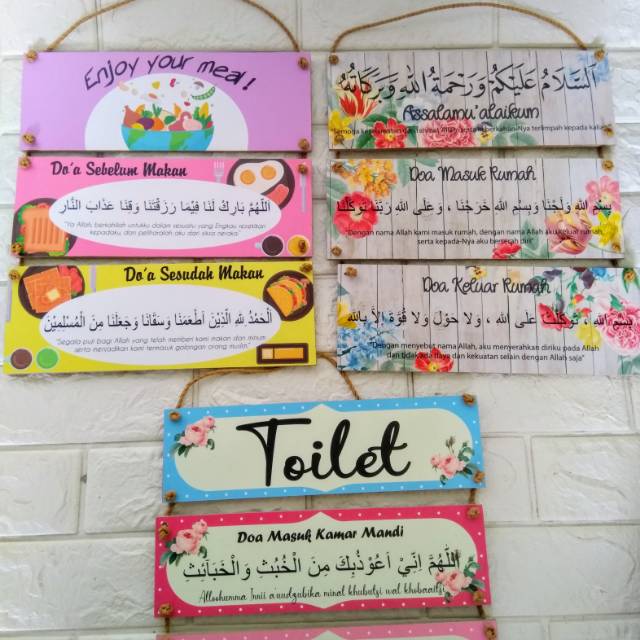 Enjoy your meal!
Do'a Sebelum Makan
اَللّٰهُمَّ بَارِكْ لَنَا فِيْمَا رَزَقْتَنَا وَقِنَا عَذَابَ النَّارِ
"Ya Allah, berkahilah untukku dalam sesuatu yang Engkau rezekikan
kepadaku, dan peliharalah aku dari siksa neraka."
Do'a Sesudah Makan
اَلْحَمْدُ لِلّٰهِ الَّذِيْنَ اَطْعَمَنَا وَسَقَانَا وَجَعَلَنَا مِنَ الْمُسْلِمِيْنَ
"Segala puji bagi Allah yang telah memberi kami makan dan minum
serta menjadikan kami termasuk golongan orang muslim."
اَلسَّلَامُ عَلَيْكُمْ وَرَحْمَةُ اللهِ وَبَرَكَاتُهُ
Assalamu'alaikum
terlimpah kepada kalian
Doa Masuk Rumah
بِسْمِ اللهِ وَلَجْنَا وَبِسْمِ اللهِ خَرَجْنَا ، وَعَلَى اللهِ رَبِّنَا تَوَكَّلْنَا
"Dengan nama Allah kami masuk rumah, dengan nama Allah aku keluar rumah,
serta kepada-Nya aku berserah diri"
Doa Keluar Rumah
بِسْمِ اللهِ ، تَوَكَّلْتُ عَلَى اللهِ ، وَلَا حَوْلَ وَلَا قُوَّةَ اِلَّا بِاللهِ
"Dengan menyebut nama Allah, aku menyerahkan diriku pada Allah
dan tidak ada daya dan kekuatan selain dengan Allah saja"
Toilet
Doa Masuk Kamar Mandi
اَللّٰهُمَّ اِنِّيْ اَعُوْذُبِكَ مِنَ الْخُبُثِ وَالْخَبَائِثِ
Alloohumma Innii a'uudzubika minal khubutsi wal khobaaitsi